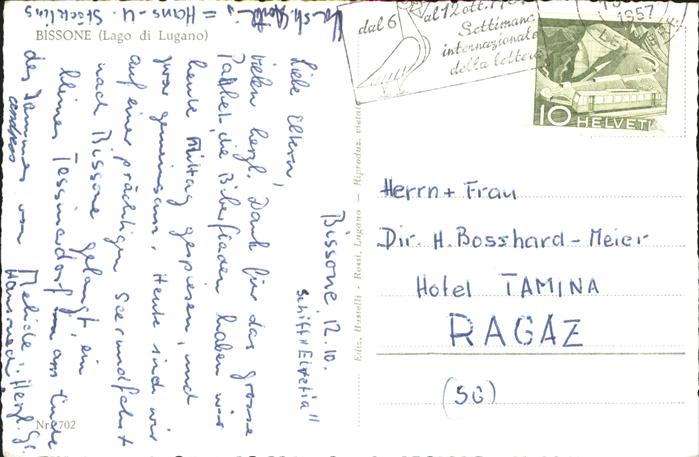 BISSONE (Lago di Lugano)
Bissone, 12.10.
Schiff "Helvetia"
Liebe Eltern,
vielen herzl. Dank für das grosse
Packet, die Biberfladen haben wir
heute Mittag gespiesen, und
zwar gemeinsam. Heute sind wir
auf einer prächtigen Seerundfahrt
nach Bissone gelangt, ein
kleines Tessinerdorf am Ende
des Dammes von Melide. Herzl. Gr.
Hansruedi
= Hans-U. Stöcklin
Nr. 702
Ediz. Rustelli - Rossi, Lugano — Riproduz. vietata
dal 6 al 12 ott.
Settimana
internazionale
della lettera
1957
10 HELVETIA
Herrn + Frau
Dir. H. Bosshard - Meier
Hotel TAMINA
RAGAZ
(SG)